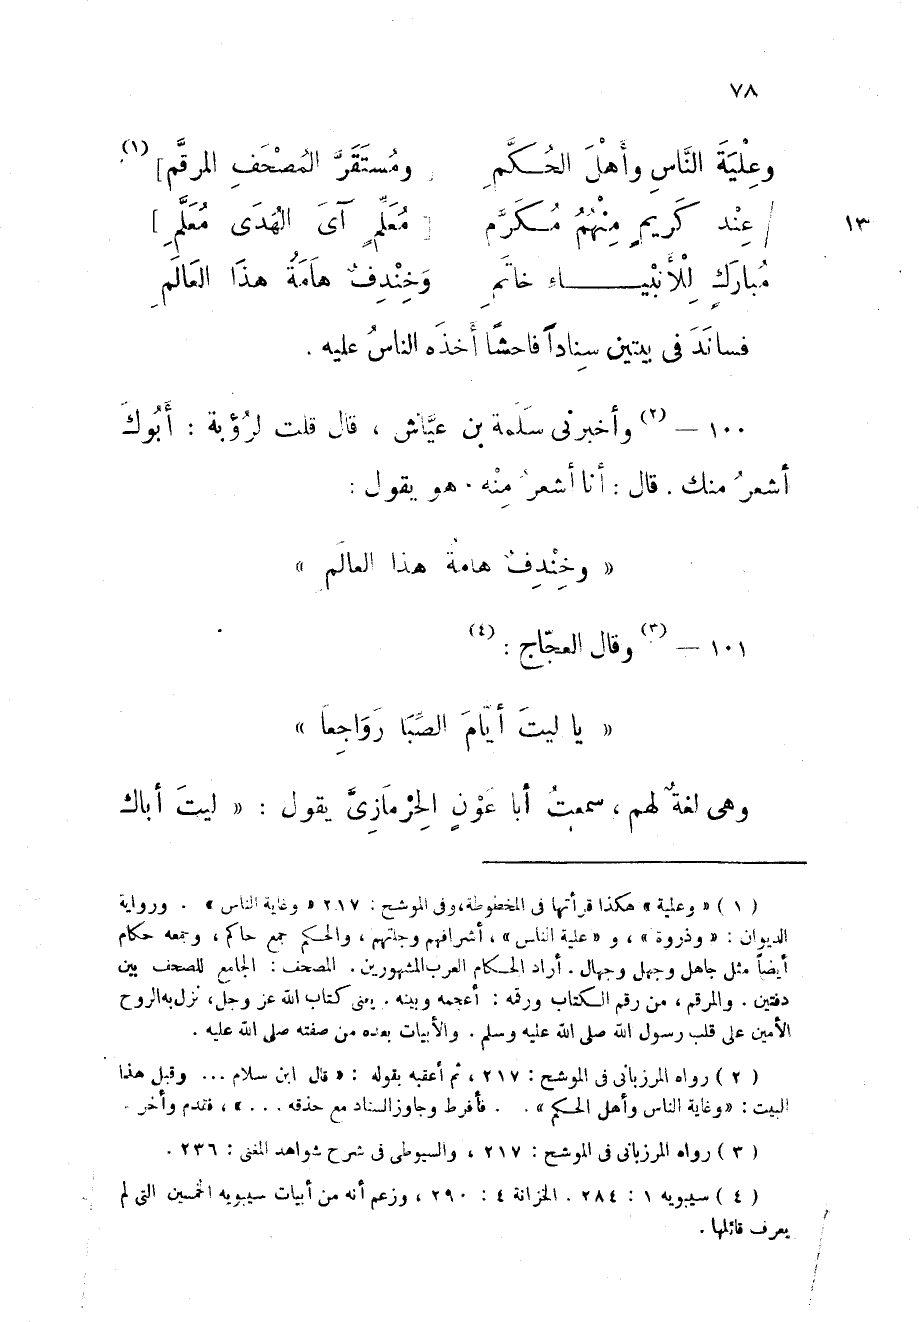 ٧٨
وعِلْيَةَ النَّاسِ وأَهْلَ الحُكَّمِ ومُسْتَقَرَّ المُصْحَفِ المرقَّمِ] (١)
١٣ / عِنْد كَرِيمٍ مِنْهُمُ مُكَرَّمِ [ مُعَلِّمٍ آىَ الهُدَى مُعَلَّمِ ]
مُبارَكٍ لِلْأَنْبِيَاءِ خاتَمِ وَخِنْدِفٌ هَامَةُ هذَا العَالَمِ
فسانَدَ فى بيتين سِناداً فاحشًا أَخذَه الناسُ عليه .
١٠٠ — (٢) وأخبرنى سَلَمة بن عيَّاش ، قال قلت لرُؤْبة : أَبُوكَ
أشعرُ منك . قال : أنا أشعرُ مِنْه . هو يقول :
« وخِنْدِفٌ هامةُ هذا العالَمِ »
١٠١ — (٣) وقال العجّاج : (٤)
« يا ليتَ أيّامَ الصِّبَا رَوَاجِعاَ »
وهى لغةٌ لهم ، سمعتُ أبا عَوْنٍ الحِرْمَازِىَّ يقول : « ليتَ أباك
( ١ ) « وعلية » هكذا قرأتها فى المخطوطة، وفى الموشح : ٢١٧ « وغاية الناس » . ورواية
الديوان : « وذروة » ، و « علية الناس » ، أشرافهم وجلتهم ، والحكم جمع حاكم ، وجمعه حكام
أيضاً مثل جاهل وجهل وجهال . أراد الحكام العرب المشهورين . المصحف : الجامع للصحف بين
دفتين . والمرقم ، من رقم الكتاب ورقمه : أعجمه وبينه . يعنى كتاب الله عز وجل، نزل به الروح
الأمين على قلب رسول الله صلى الله عليه وسلم . والأبيات بعده من صفته صلى الله عليه .
( ٢ ) رواه المرزبانى فى الموشح : ٢١٧ ، ثم أعقبه بقوله : « قال ابن سلام ... وقبل هذا
البيت : «وغاية الناس وأهل الحكم » . . فأفرط وجاوز السناد مع حذقه . . . » ، فقدم وأخر .
( ٣ ) رواه المرزبانى فى الموشح : ٢١٧ ، والسيوطى فى شرح شواهد المغنى : ٢٣٦ .
( ٤ ) سيبويه ١ : ٢٨٤ . الخزانة ٤ : ٢٩٠ ، وزعم أنه من أبيات سيبويه الخمسين التى لم
يعرف قائلها .